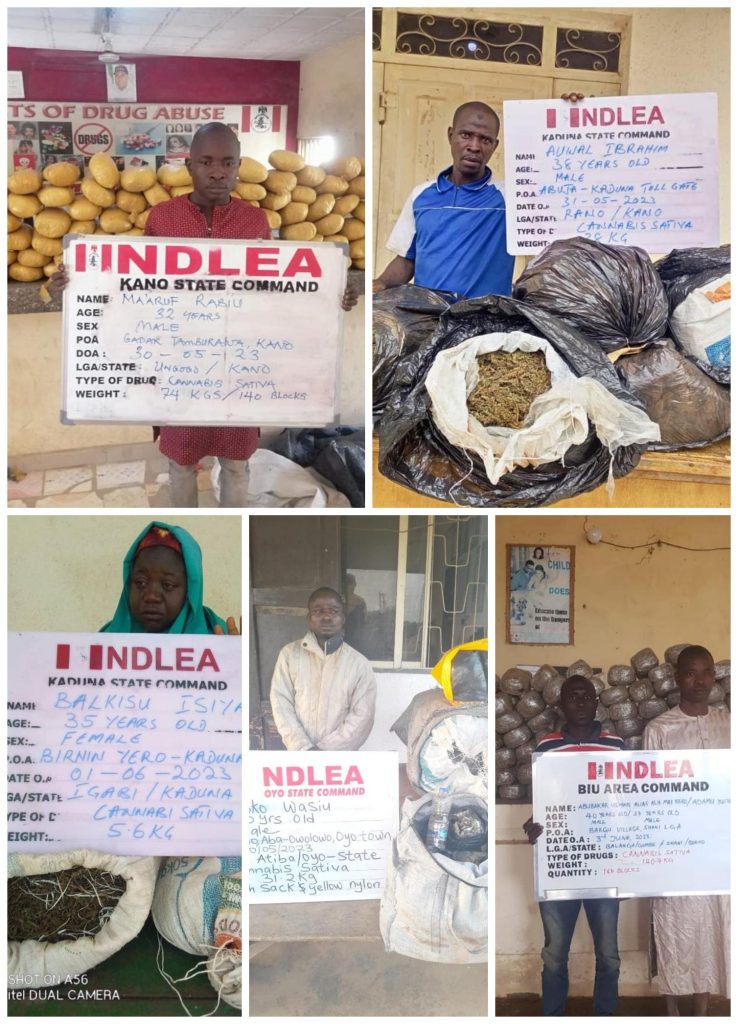 TS OF DRUG ABUSE
DRUGS
NDLEA
KANO STATE COMMAND
NAME: MA'ARUF RABIU
AGE: 32 YEARS
SEX MALE
POA GADAR TAMBURAWA, KANO
DOA: 30-05-23
LGA/STATE: UNGOGO / KANO
TYPE OF DRUG: CANNABIS SATIVA
WEIGHT: 74 KGS/140 BLOCKS
NDLEA
KADUNA STATE COMMAND
NAME AUWAL IBRAHIM
AGE: 38 YEARS OLD
SEX: MALE
P.O.A ABUJA-KADUNA TOLL GATE
DATE O.A 31-05-2023
LGA/STATE RANO/KANO
TYPE OF D CANNABIS SATIVA
WEIGHT: KG
NDLEA
KADUNA STATE COMMAND
NAME BALKISU ISIYA
AGE: 35 YEARS OLD
SEX: FEMALE
P.O.A. BIRNIN YERO-KADUNA
DATE O.A 01-06-2023
GA/STATE IGABI/KADUNA
TYPE OF D CANNABIS SATIVA
EIGHT: 5.6KG
SHOT ON A56
itel DUAL CAMERA
NDLEA
OYO STATE COMMAND
oko Wasiu
yrs old
ale
o, Aba-owolowo, Oyo town
/05/2023
Atiba/oyo-state
nnabis Sativa
31.2kg
n Sack & yellow nylon
CHILD
DOES
Educate them
on the Dangers
of
NDLEA
BIU AREA COMMAND
NAME: ABUBAKAR USMAN ALIAS / ADAMU
AGE: 40 YEARS OLD / YEARS OLD
SEX: MALE MALE
P.O.A: BARGU VILLAGE, SHANI L.G.A
DATE O.A: 3rd JUNE, 2023
L.G.A/STATE: BALANGA/GOMBE / SHANI/BORNO
TYPE OF DRUGS: CANNABIS SATIVA
WEIGHT:
QUANTITY: BLOCKS